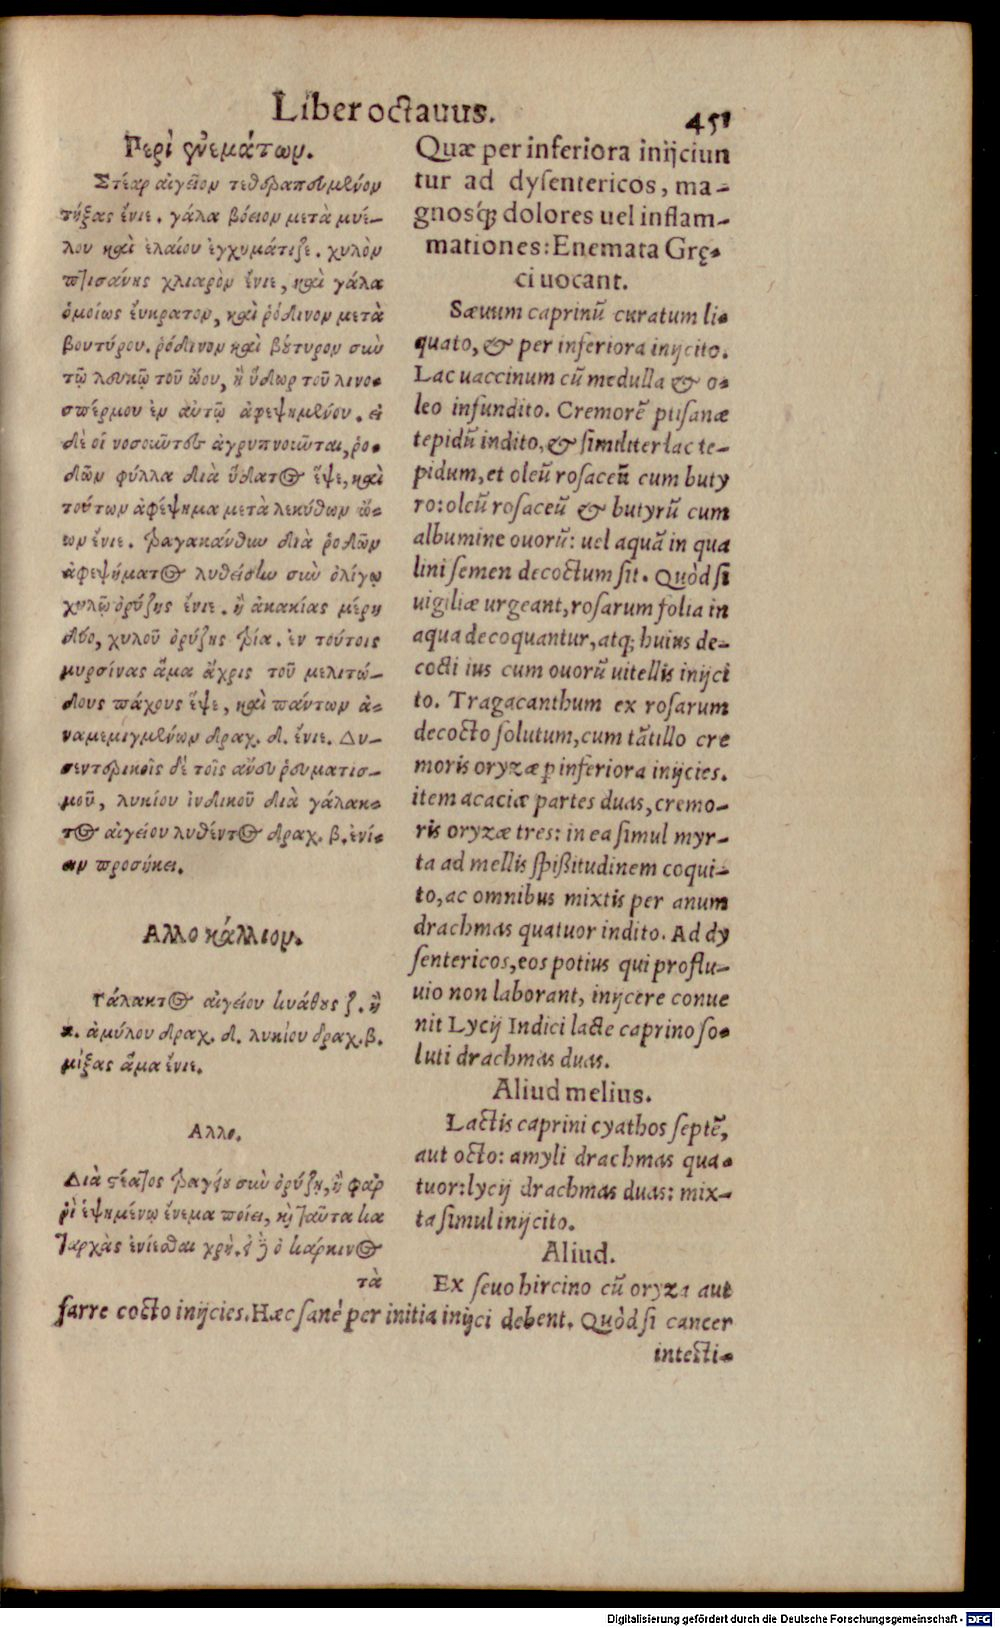 Liber octavus.
451
Περὶ ἐνεμάτων.
Στέαρ αἰγεῖον τεθεραπευμένον
τήξας ἔνιε. γάλα βόειον μετὰ μυέ-
λου καὶ ἐλαίου ἐγχυμάτιζε. χυλὸν
πτισάνης χλιαρὸν ἔνιε, καὶ γάλα
ὁμοίως εὔκρατον, καὶ ῥόδινον μετὰ
βουτύρου. ῥόδινον καὶ βούτυρον σὺν
τῷ λευκῷ τοῦ ὠου, ἢ ὕδωρ τοῦ λινο-
σπέρμου ἐν αὐτῷ ἀφεψημένου. εἰ
δὲ οἱ νοσοῦντες ἀγρυπνοιῶται, ῥό-
δων φύλλα διὰ ὕδατος ἕψε, καὶ
τούτων ἀφέψημα μετὰ λεκύθων ὠ-
ων ἔνιε. τραγακάνθην διὰ ῥόδων
ἀφεψήματος λυθεῖσαν σὺν ὀλίγῳ
χυλῷ ὀρύζης ἔνιε. ἢ ἀκακίας μέρη
δύο, χυλοῦ ὀρύζης τρία. ἐν τούτοις
μυρσίνας ἅμα ἄχρις τοῦ μελιτώ-
δους πάχους ἕψε, καὶ πάντων ἀ-
ναμεμιγμένων δραχ. δ. ἔνιε. Δυ-
σεντερικοῖς δὲ τοῖς ἄνευ ῥευματισ-
μοῦ, λυκίου ἰνδικοῦ διὰ γάλακ-
τος αἰγείου λυθέντος δραχ. β. ἐνί-
ειν προσήκει.
Αλλο κάλλιον.
Γάλακτος αἰγείου κυάθους ζ. ἢ
η. ἀμύλου δραχ. δ. λυκίου δραχ. β.
μίξας ἅμα ἔνιε.
Αλλο.
Διὰ στέατος τράγου σὺν ὀρύζῃ, ἢ φαρ
ρὶ ἑψημένῳ ἔνεμα ποίει, καὶ ταῦτα κα
ταρχὰς ἐνίεσθαι χρή. εἰ δὲ ὁ καρκινος
τὰ
Quæ per inferiora inijciun
tur ad dysentericos, ma-
gnosq́; dolores uel inflam-
mationes: Enemata Grę-
ci uocant.
Sæuum caprinũ curatum li-
quato, & per inferiora inijcito.
Lac uaccinum cũ medulla & o-
leo infundito. Cremorẽ ptisanæ
tepidũ indito, & similiter lac te-
pidum, et oleũ rosaceũ cum buty
ro: oleũ rosaceũ & butyrũ cum
albumine ouorũ: uel aquã in qua
lini semen decoctum sit. Quòd si
uigiliæ urgeant, rosarum folia in
aqua decoquantur, atq; huius de-
cocti ius cum ouorũ uitellis inijci
to. Tragacanthum ex rosarum
decocto solutum, cum tãtillo cre
moris oryzæ ꝑ inferiora inijcies.
item acaciæ partes duas, cremo-
ris oryzæ tres: in ea simul myr-
ta ad mellis spißitudinem coqui-
to, ac omnibus mixtis per anum
drachmas quatuor indito. Ad dy
sentericos, eos potius qui proflu-
uio non laborant, inijcere conue
nit Lycij Indici lacte caprino so-
luti drachmas duas.
Aliud melius.
Lactis caprini cyathos septẽ,
aut octo: amyli drachmas qua-
tuor: lycij drachmas duas: mix-
ta simul inijcito.
Aliud.
Ex seuo hircino cũ oryza aut
farre cocto inijcies. Hæc sanè per initia inijci debent. Quòd si cancer
intesti-
Digitalisierung gefördert durch die Deutsche Forschungsgemeinschaft - DFG